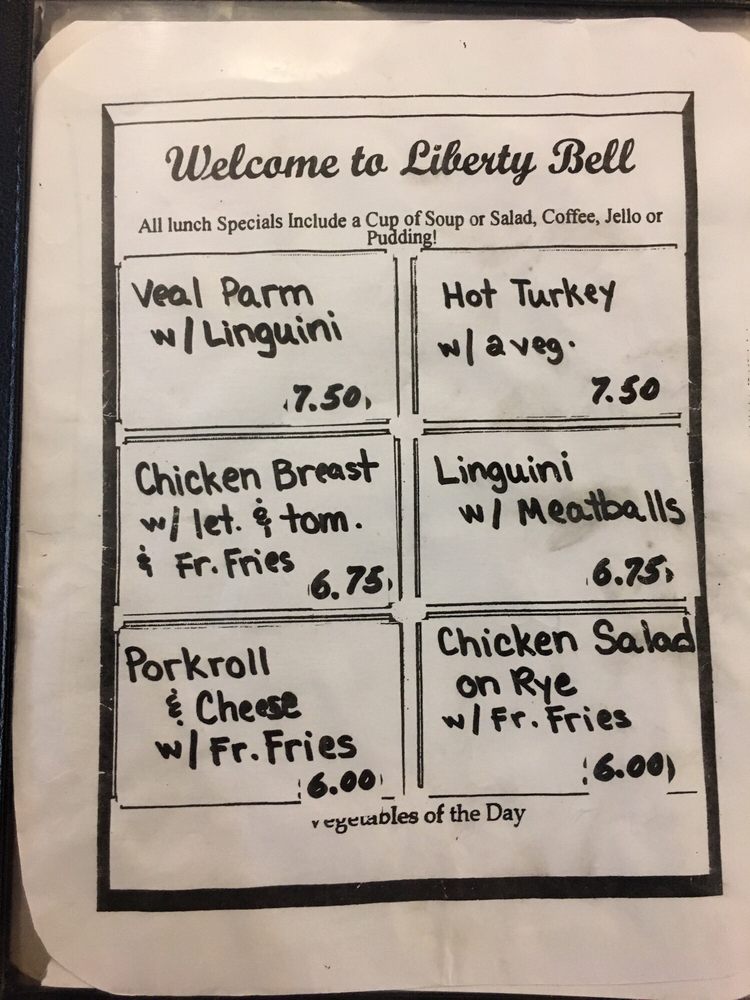 Welcome to Liberty Bell
All lunch Specials Include a Cup of Soup or Salad, Coffee, Jello or
Pudding!
Veal Parm
w/ Linguini
7.50
Hot Turkey
w/ a veg.
7.50
Chicken Breast
w/ let. & tom.
& Fr. Fries
6.75
Linguini
w/ Meatballs
6.75
Porkroll
& Cheese
w/ Fr. Fries
6.00
Chicken Salad
on Rye
w/ Fr. Fries
6.00
Vegetables of the Day